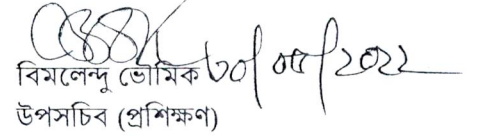 বিমলেন্দু ভৌমিক ৩০/০৫/২০২২
উপসচিব (প্রশিক্ষণ)